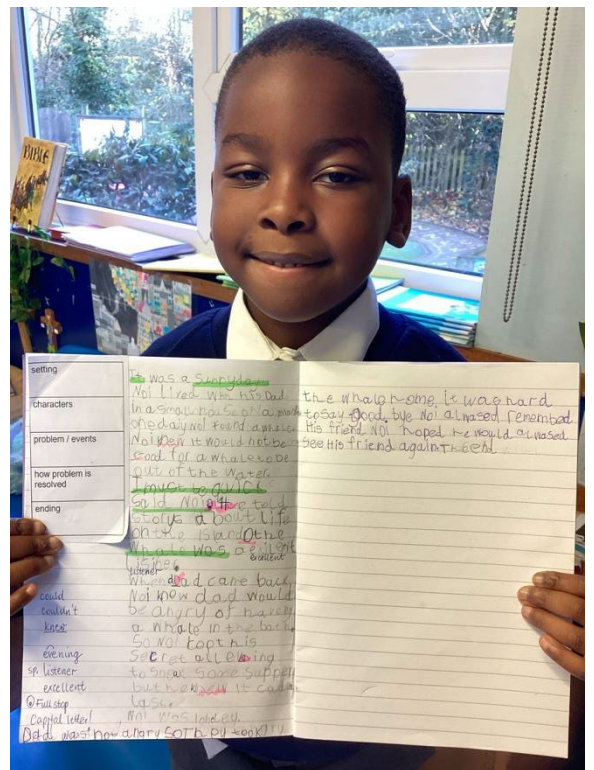 BIBLE
setting
characters
problem / events
how problem is
resolved
ending
could
couldn't
knew
evening
sp. listener
excellent
Full stop
Capital letter!
It was a Sunnyday
Noi Lived with his Dad
In a small house
one day Noi found a whale
Noi it would not be
Good for a whale to be
out of the water.
I must be quick
Said Noi He told
storys about life
on the island the
Whale was a
excellent
listener
When dad came back
Noi knew dad would
be angry of
a whale in the bath
So Noi kept his
secret all
to some supper
but it
last.
Noi was
Dad was not angry so they took
the whale home it was hard
to say good bye Noi almased remembad
His friend Noi hoped he would almased
see His friend again The End